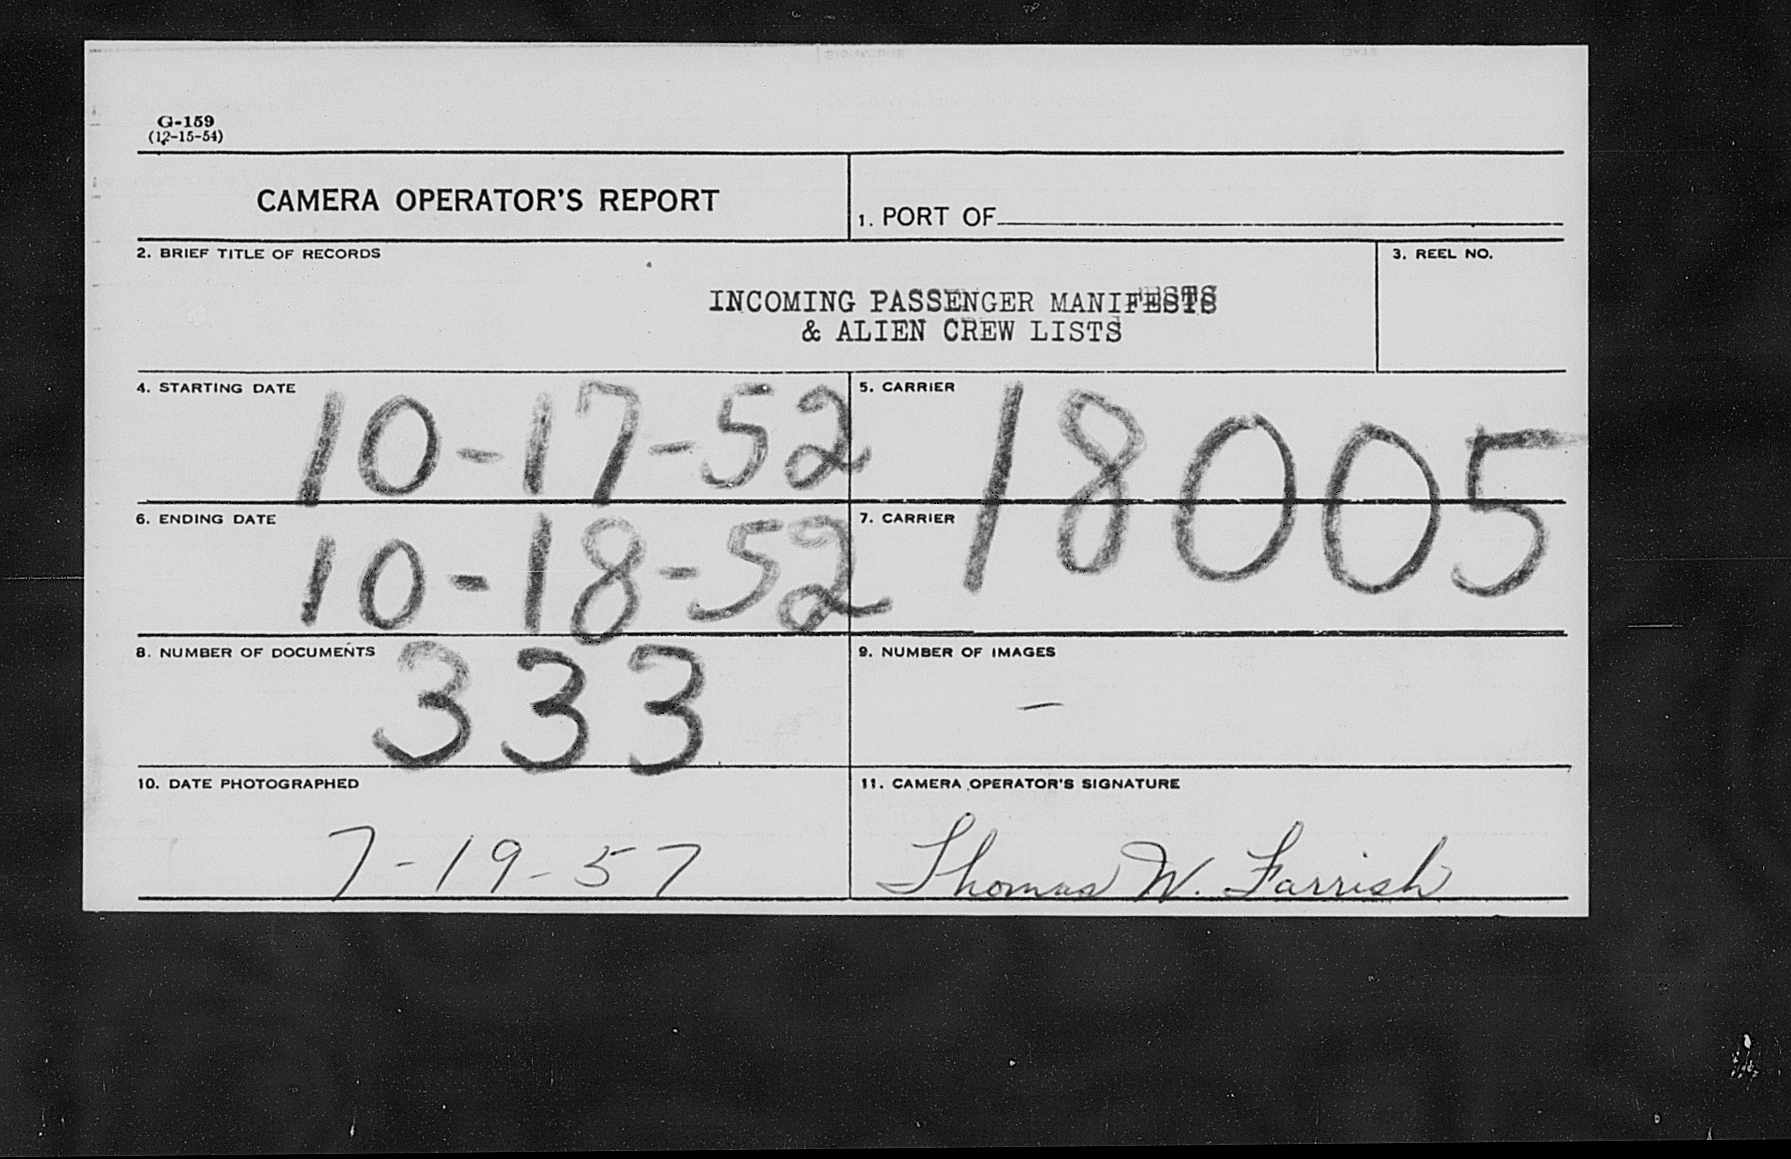 G-159
(12-15-54)
CAMERA OPERATOR'S REPORT
1. PORT OF
2. BRIEF TITLE OF RECORDS
INCOMING PASSENGER MANIFESTS
& ALIEN CREW LISTS
3. REEL NO.
4. STARTING DATE
10-17-52
5. CARRIER
18005
6. ENDING DATE
10-18-52
7. CARRIER
8. NUMBER OF DOCUMENTS
333
9. NUMBER OF IMAGES
-
10. DATE PHOTOGRAPHED
7-19-57
11. CAMERA OPERATOR'S SIGNATURE
Thomas W. Farrish